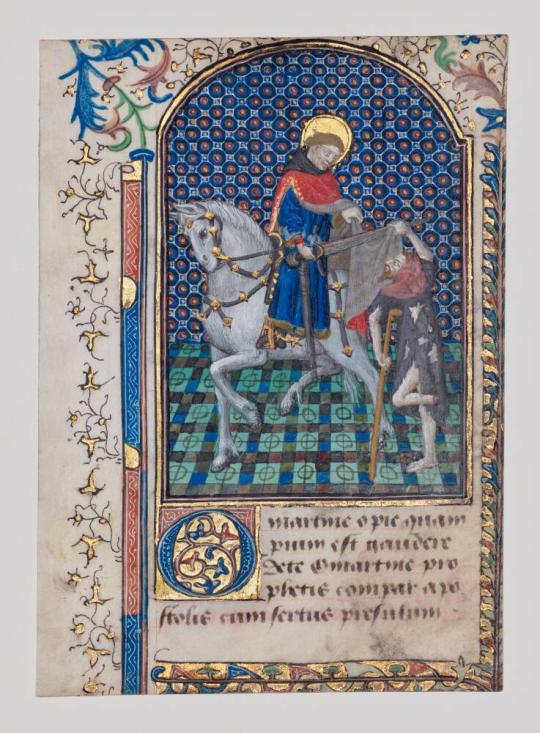 O martine o pie quam
pium est gaudere
de te O martine pro
phetis compar apo
stolis consertus presulum